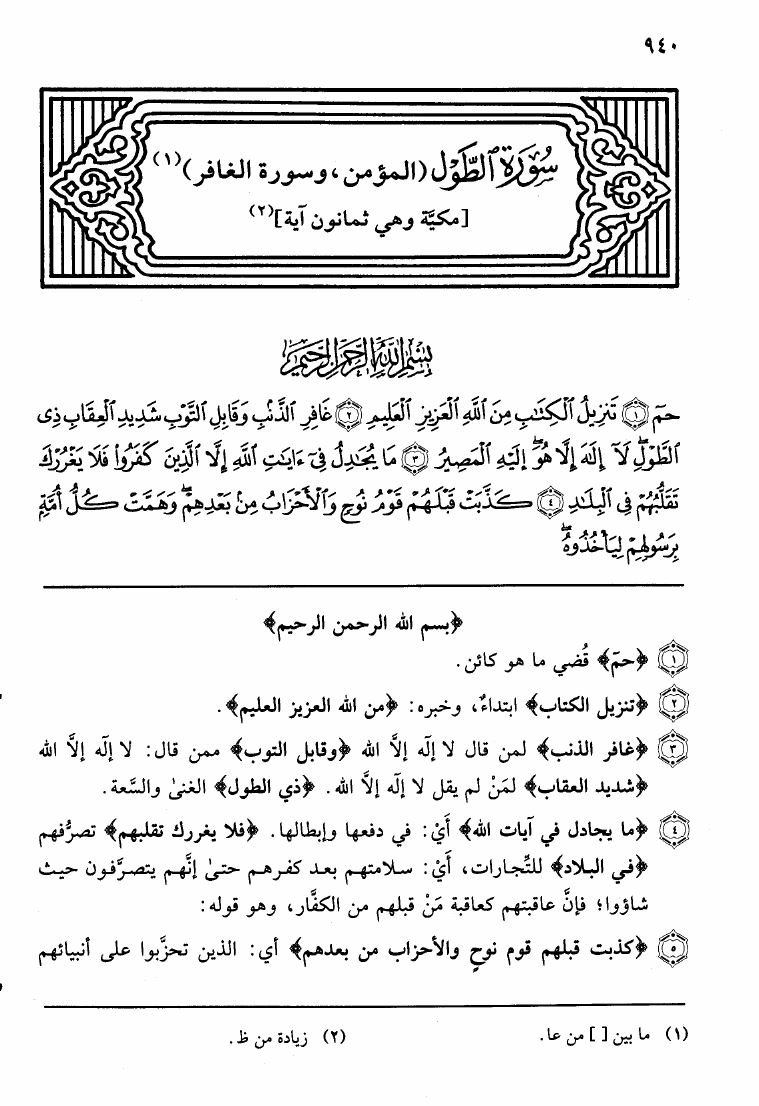 ٩٤٠
سُورَةُ ٱلطَّوْلِ (المؤمن، وسورة الغافر)(١)
[مكيَّة وهي ثمانون آية](٢)
بِسْمِ ٱللَّهِ ٱلرَّحْمَٰنِ ٱلرَّحِيمِ
حمٓ ١ تَنزِيلُ ٱلْكِتَٰبِ مِنَ ٱللَّهِ ٱلْعَزِيزِ ٱلْعَلِيمِ ٢ غَافِرِ ٱلذَّنۢبِ وَقَابِلِ ٱلتَّوْبِ شَدِيدِ ٱلْعِقَابِ ذِى
ٱلطَّوْلِۖ لَآ إِلَٰهَ إِلَّا هُوَۖ إِلَيْهِ ٱلْمَصِيرُ ٣ مَا يُجَٰدِلُ فِىٓ ءَايَٰتِ ٱللَّهِ إِلَّا ٱلَّذِينَ كَفَرُوا۟ فَلَا يَغْرُرْكَ
تَقَلُّبُهُمْ فِى ٱلْبِلَٰدِ ٤ كَذَّبَتْ قَبْلَهُمْ قَوْمُ نُوحٍ وَٱلْأَحْزَابُ مِنۢ بَعْدِهِمْۖ وَهَمَّتْ كُلُّ أُمَّةٍۭ
بِرَسُولِهِمْ لِيَأْخُذُوهُۖ
﴿بسم الله الرحمن الرحيم﴾
١ ﴿حمٓ﴾ قُضي ما هو كائن.
٢ ﴿تنزيل الكتاب﴾ ابتداءٌ، وخبره: ﴿من الله العزيز العليم﴾.
٣ ﴿غافر الذنب﴾ لمن قال لا إلٰه إلاَّ الله ﴿وقابل التوب﴾ ممن قال: لا إلٰه إلاَّ الله
﴿شديد العقاب﴾ لمَنْ لم يقل لا إلٰه إلاَّ الله. ﴿ذي الطول﴾ الغنىٰ والسَّعة.
٤ ﴿ما يجادل في آيات الله﴾ أَيْ: في دفعها وإبطالها. ﴿فلا يغررك تقلبهم﴾ تصرُّفهم
﴿في البلاد﴾ للتِّجارات، أَيْ: سلامتهم بعد كفرهم حتىٰ إنَّهم يتصرَّفون حيث
شاؤوا؛ فإنَّ عاقبتهم كعاقبة مَنْ قبلهم من الكفَّار، وهو قوله:
٥ ﴿كذبت قبلهم قوم نوحٍ والأحزاب من بعدهم﴾ أي: الذين تحزَّبوا على أنبيائهم
(١) ما بين [ ] من عا. (٢) زيادة من ظ.